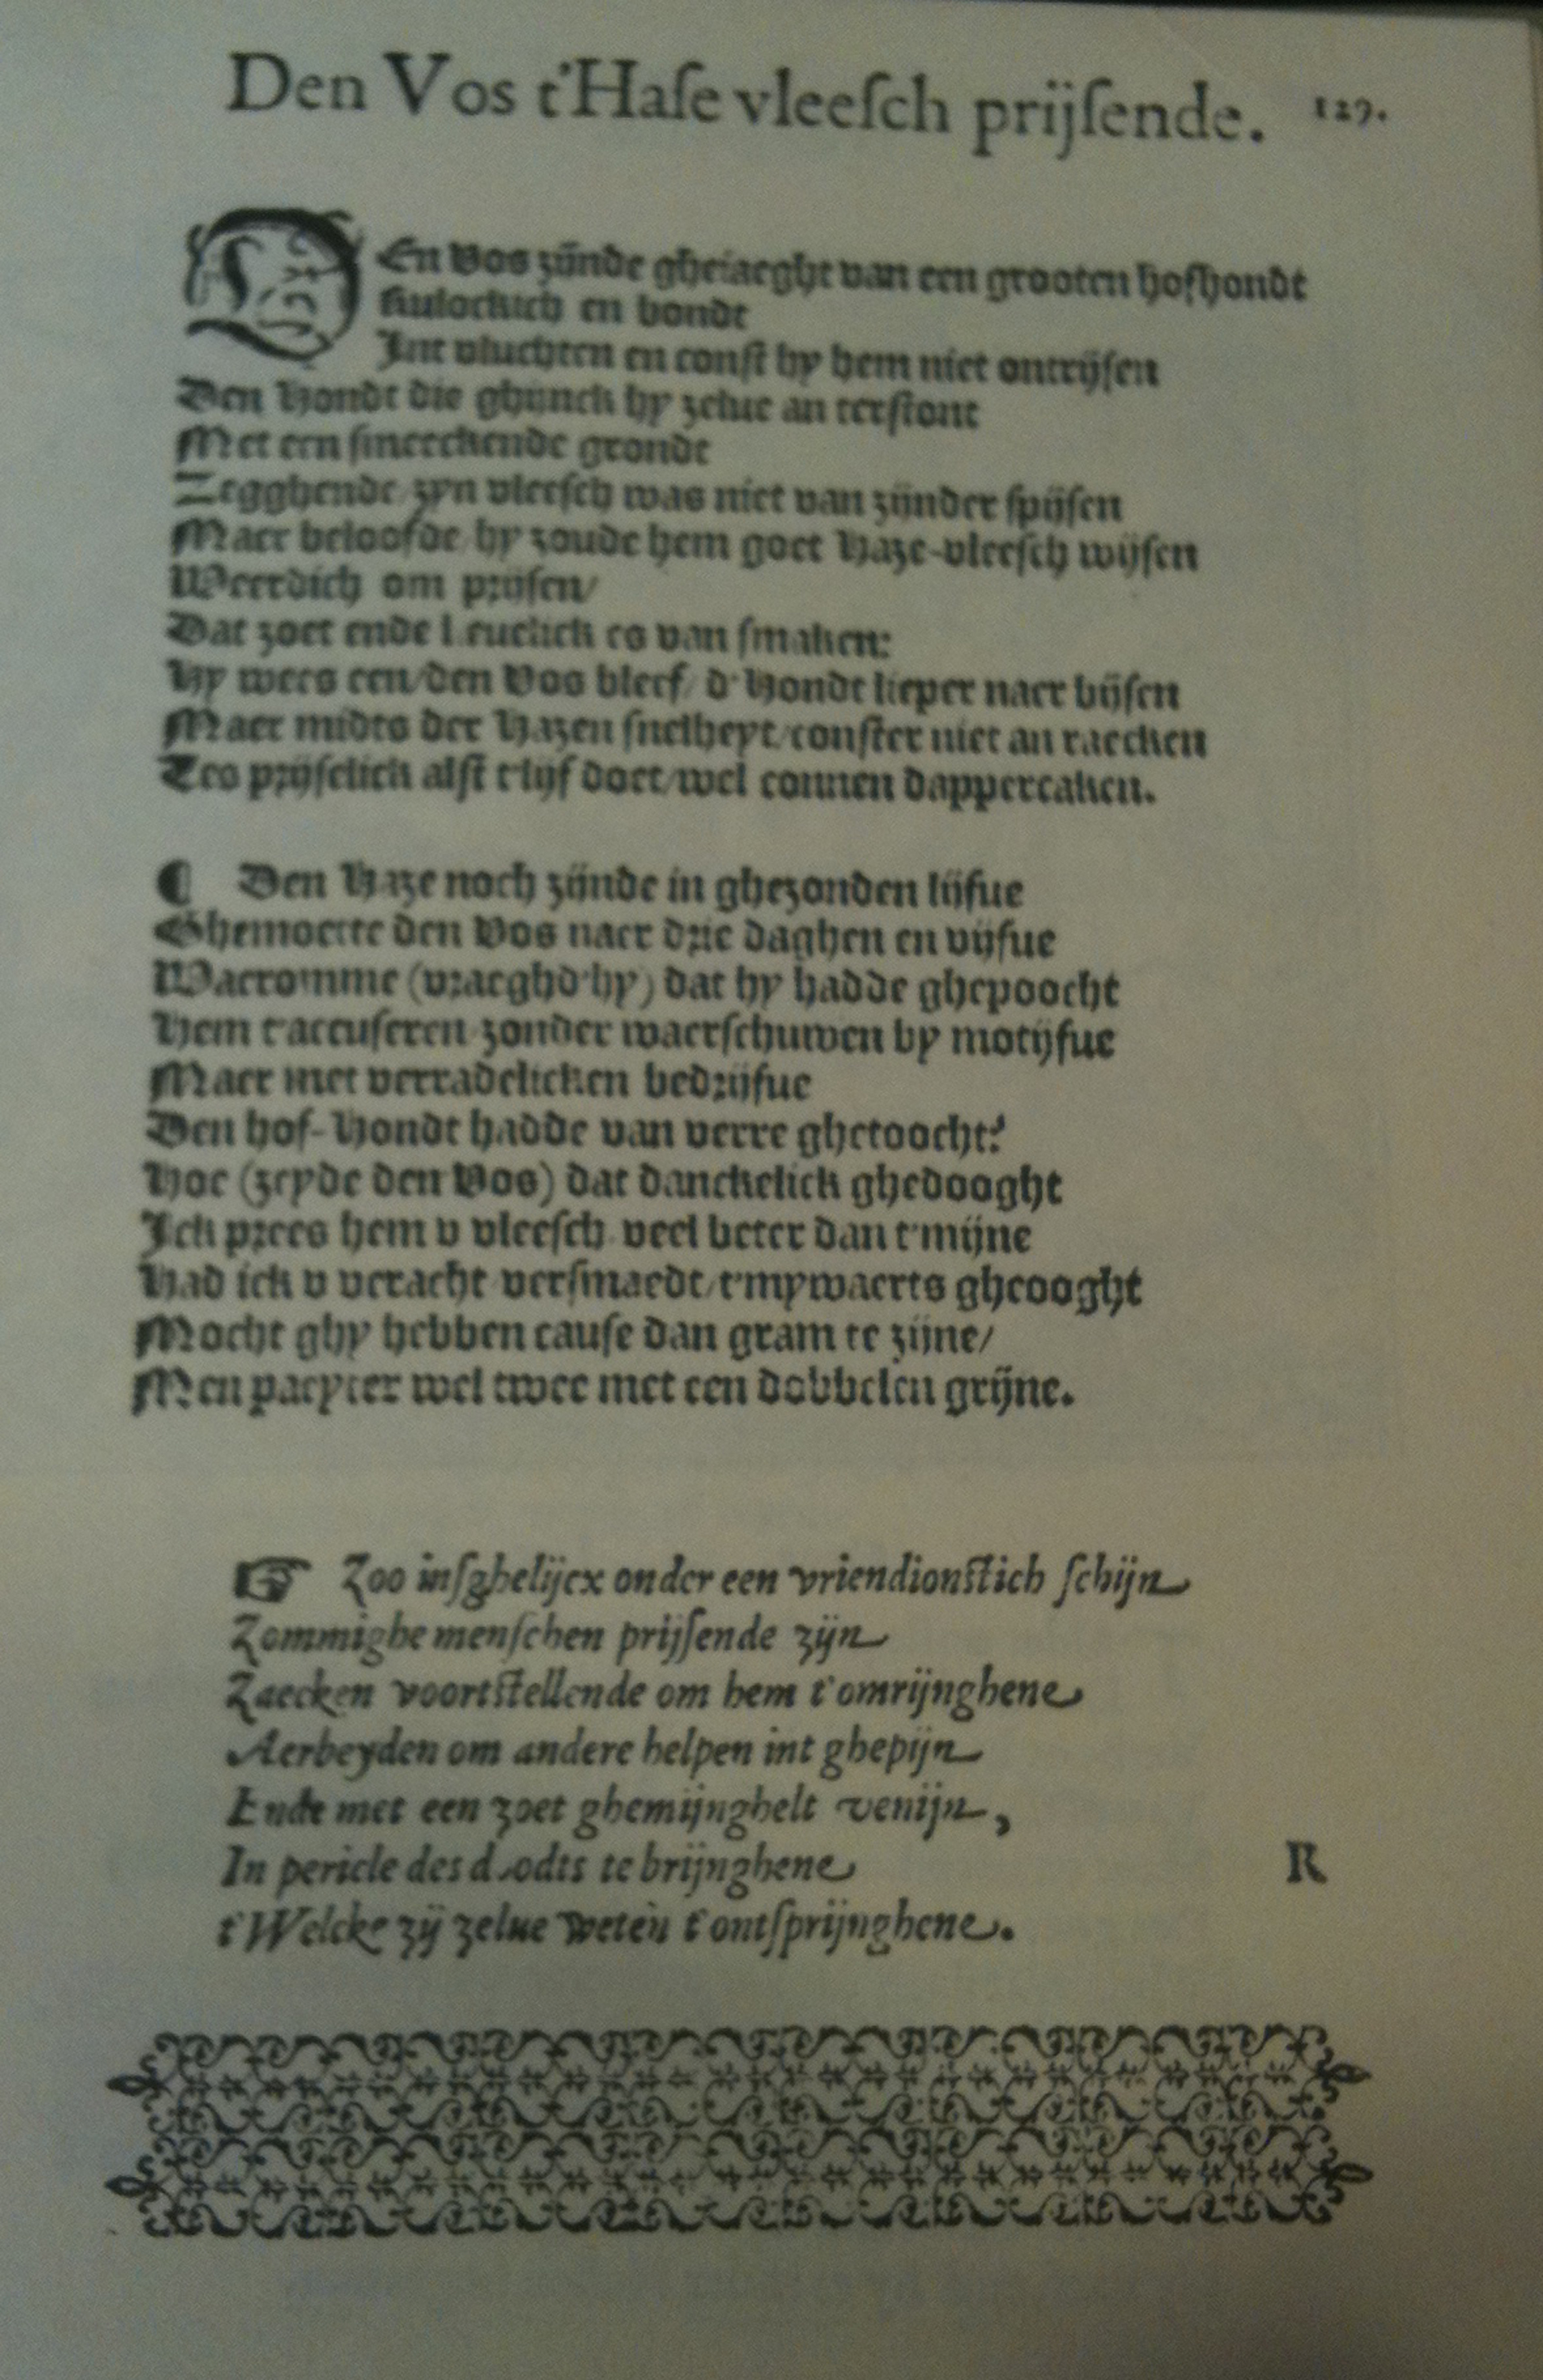 Den Vos t'Haſe vleeſch prijſende. 129.
DEn Vos zijnde gheiaeght van een grooten hofhondt
en vondt
Int vluchten en conſt hy hem niet ontrijſen
Den Hondt die ghijnck hy zelue an terſtont
Met een ſmeeckende grondt
Zegghende/ zyn vleeſch was niet van zijnder ſpijſen
Maer beloofde/ hy zoude hem goet Haze-vleeſch wijſen
Weerdich om prijſen/
Dat zoet ende Leuelick es van ſmaken:
Hy wees een/ den Vos bleef/ d'Hondt lieper naer bijſen
Maer midts der Hazen ſnelheyt/ conſter niet an raecken
Tes prijſelick alſt t'lijf doet/ wel connen dappercaken.
¶ Den Haze noch zijnde in ghezonden lijfue
Ghemoette den Vos naer drie daghen en vijfue
Waeromme (vraeghd'hy) dat hy hadde ghepoocht
Hem t'accuſeren zonder waerſchuwen by motijfue
Maer met verradelicken bedrijfue
Den hof-Hondt hadde van verre ghetoocht?
Hoe (zeyde den Vos) dat danckelick ghedooght
Ick prees hem v vleeſch veel beter dan t'mijne
Had ick v veracht verſmaedt/ t'mywaerts gheooght
Mocht ghy hebben cauſe dan gram te zijne/
Men paeyter wel twee met een dobbelen grijne.
☞ Zoo inſghelijcx onder een vriendionſtich ſchijn
Zommighe menſchen prijſende zijn
Zaecken voortſtellende om hem t'omrijnghene
Aerbeyden om andere helpen int ghepijn
Ende met een zoet ghemijnghelt venijn,
In pericle des doodts te brijnghene
R
t'Welcke zij zelue weten t'ontſprijnghene.